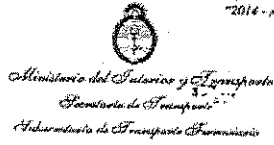 "2014 -
Ministerio del Interior y Transporte
Secretaría de Transporte
Subsecretaría de Transporte Ferroviario